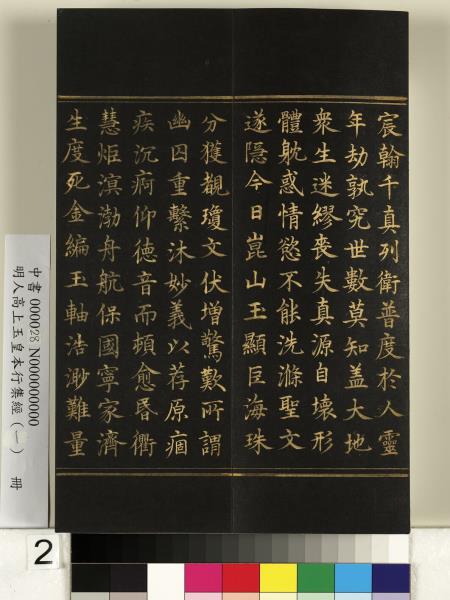 宸翰千真列衛普度於人靈
年劫孰究世數莫知盖大地
衆生迷繆喪失真源自壞形
體躭惑情慾不能洗滌聖文
遂隠今日崑山玉顯巨海珠
分獲覩瓊文伏增驚歎所謂
幽囚重繫沐妙義以荐原痼
疾沉痾仰徳音而頓愈昏衢
慧炬溟渤舟航保國寧家濟
生度死金編玉軸浩渺難量
中書 000028 N000000000
明人高上玉皇本行集經（一） 冊
2